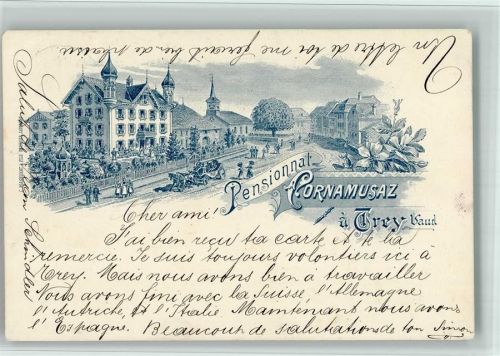 Un lettre de toi me ferait bien de plaisir
Pensionnat
CORNAMUSAZ
à Trey Vaud
Cher ami!
J'ai bien reçu ta carte et te la
remercie. Je suis toujours volontiers ici à
Trey. Mais nous avons bien à travailler
Nous avons fini avec la Suisse, l'Allemagne
l'Autriche, et l'Italie Maintenant nous avons
l'Espagne. Beaucoup de salutations de ton Simon